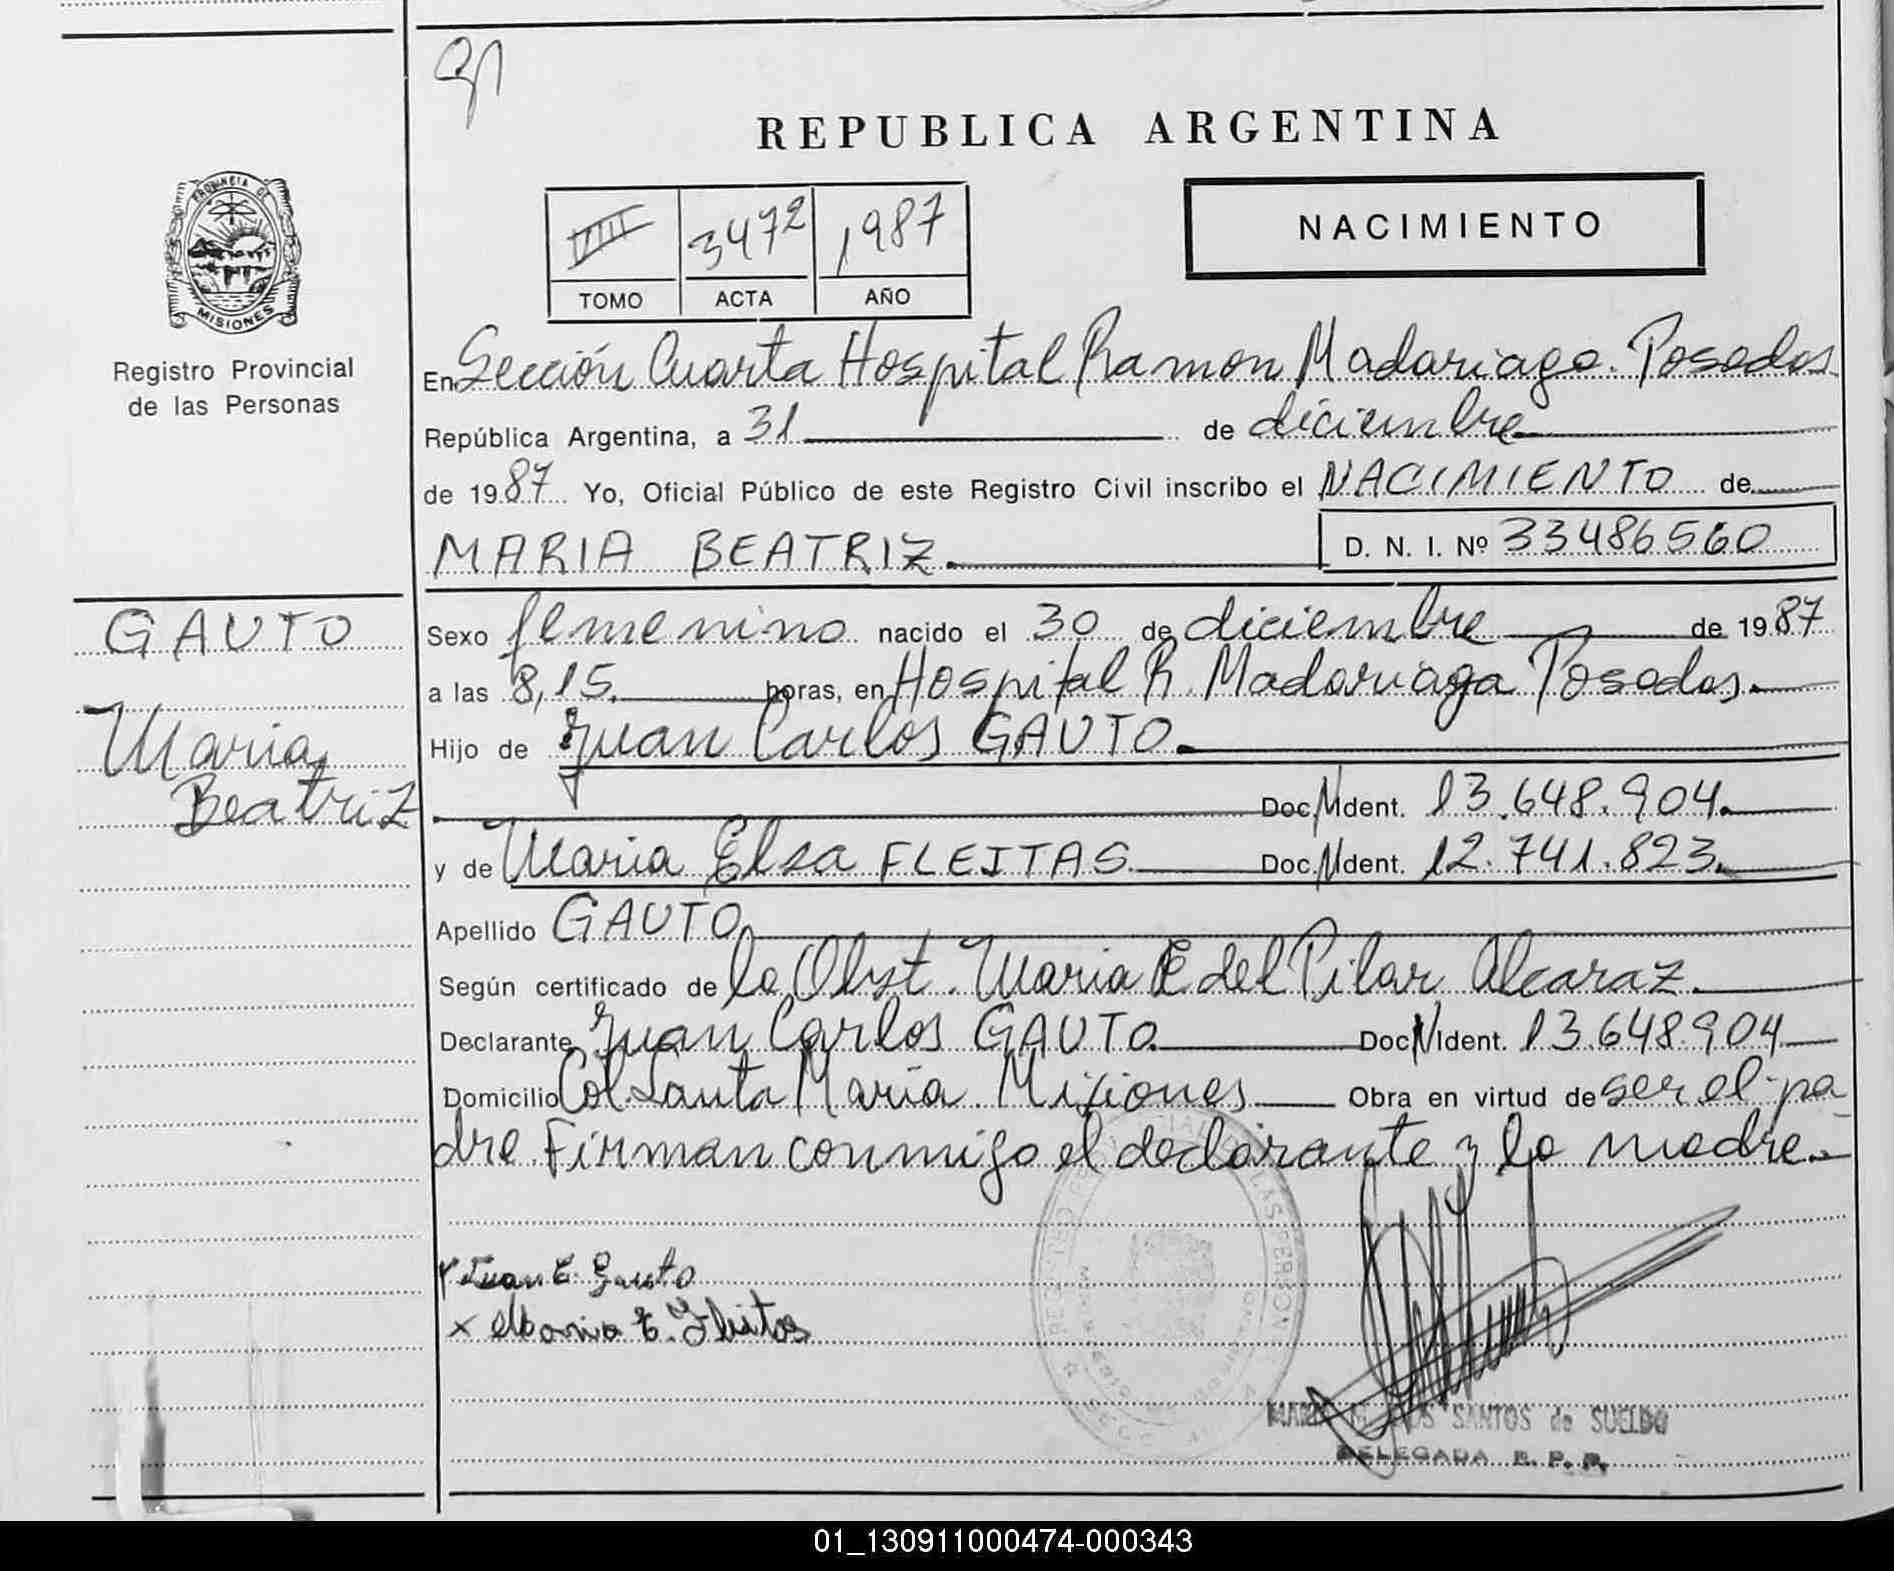 REPUBLICA ARGENTINA
PROVINCIA DE
MISIONES
Registro Provincial
de las Personas
VIII 3472 1987
TOMO ACTA AÑO
NACIMIENTO
En Sección Cuarta Hospital Ramon Madariaga. Posadas
República Argentina, a 31 de diciembre
de 1987 Yo, Oficial Público de este Registro Civil inscribo el NACIMIENTO de
MARIA BEATRIZ. D. N. I. Nº 33486560
GAUTO
Maria
Beatriz
Sexo femenino nacido el 30 de diciembre de 1987
a las 8,15. horas, en Hospital R. Madariaga Posadas.
Hijo de Juan Carlos GAUTO.
Doc. Ident. 13.648.904.
y de Maria Elsa FLEITAS Doc. Ident. 12.741.823.
Apellido GAUTO
Según certificado de la Obst. Maria E del Pilar Alcaraz.
Declarante Juan Carlos GAUTO. Doc. Ident. 13.648.904
Domicilio Col Santa Maria. Misiones Obra en virtud de ser el pa
dre. Firman conmigo el declarante y la madre.
x Juan C. Gauto
x Maria E. Fleitas
SANTOS de SUELDO
DELEGADA R. P. P.
01_130911000474-000343